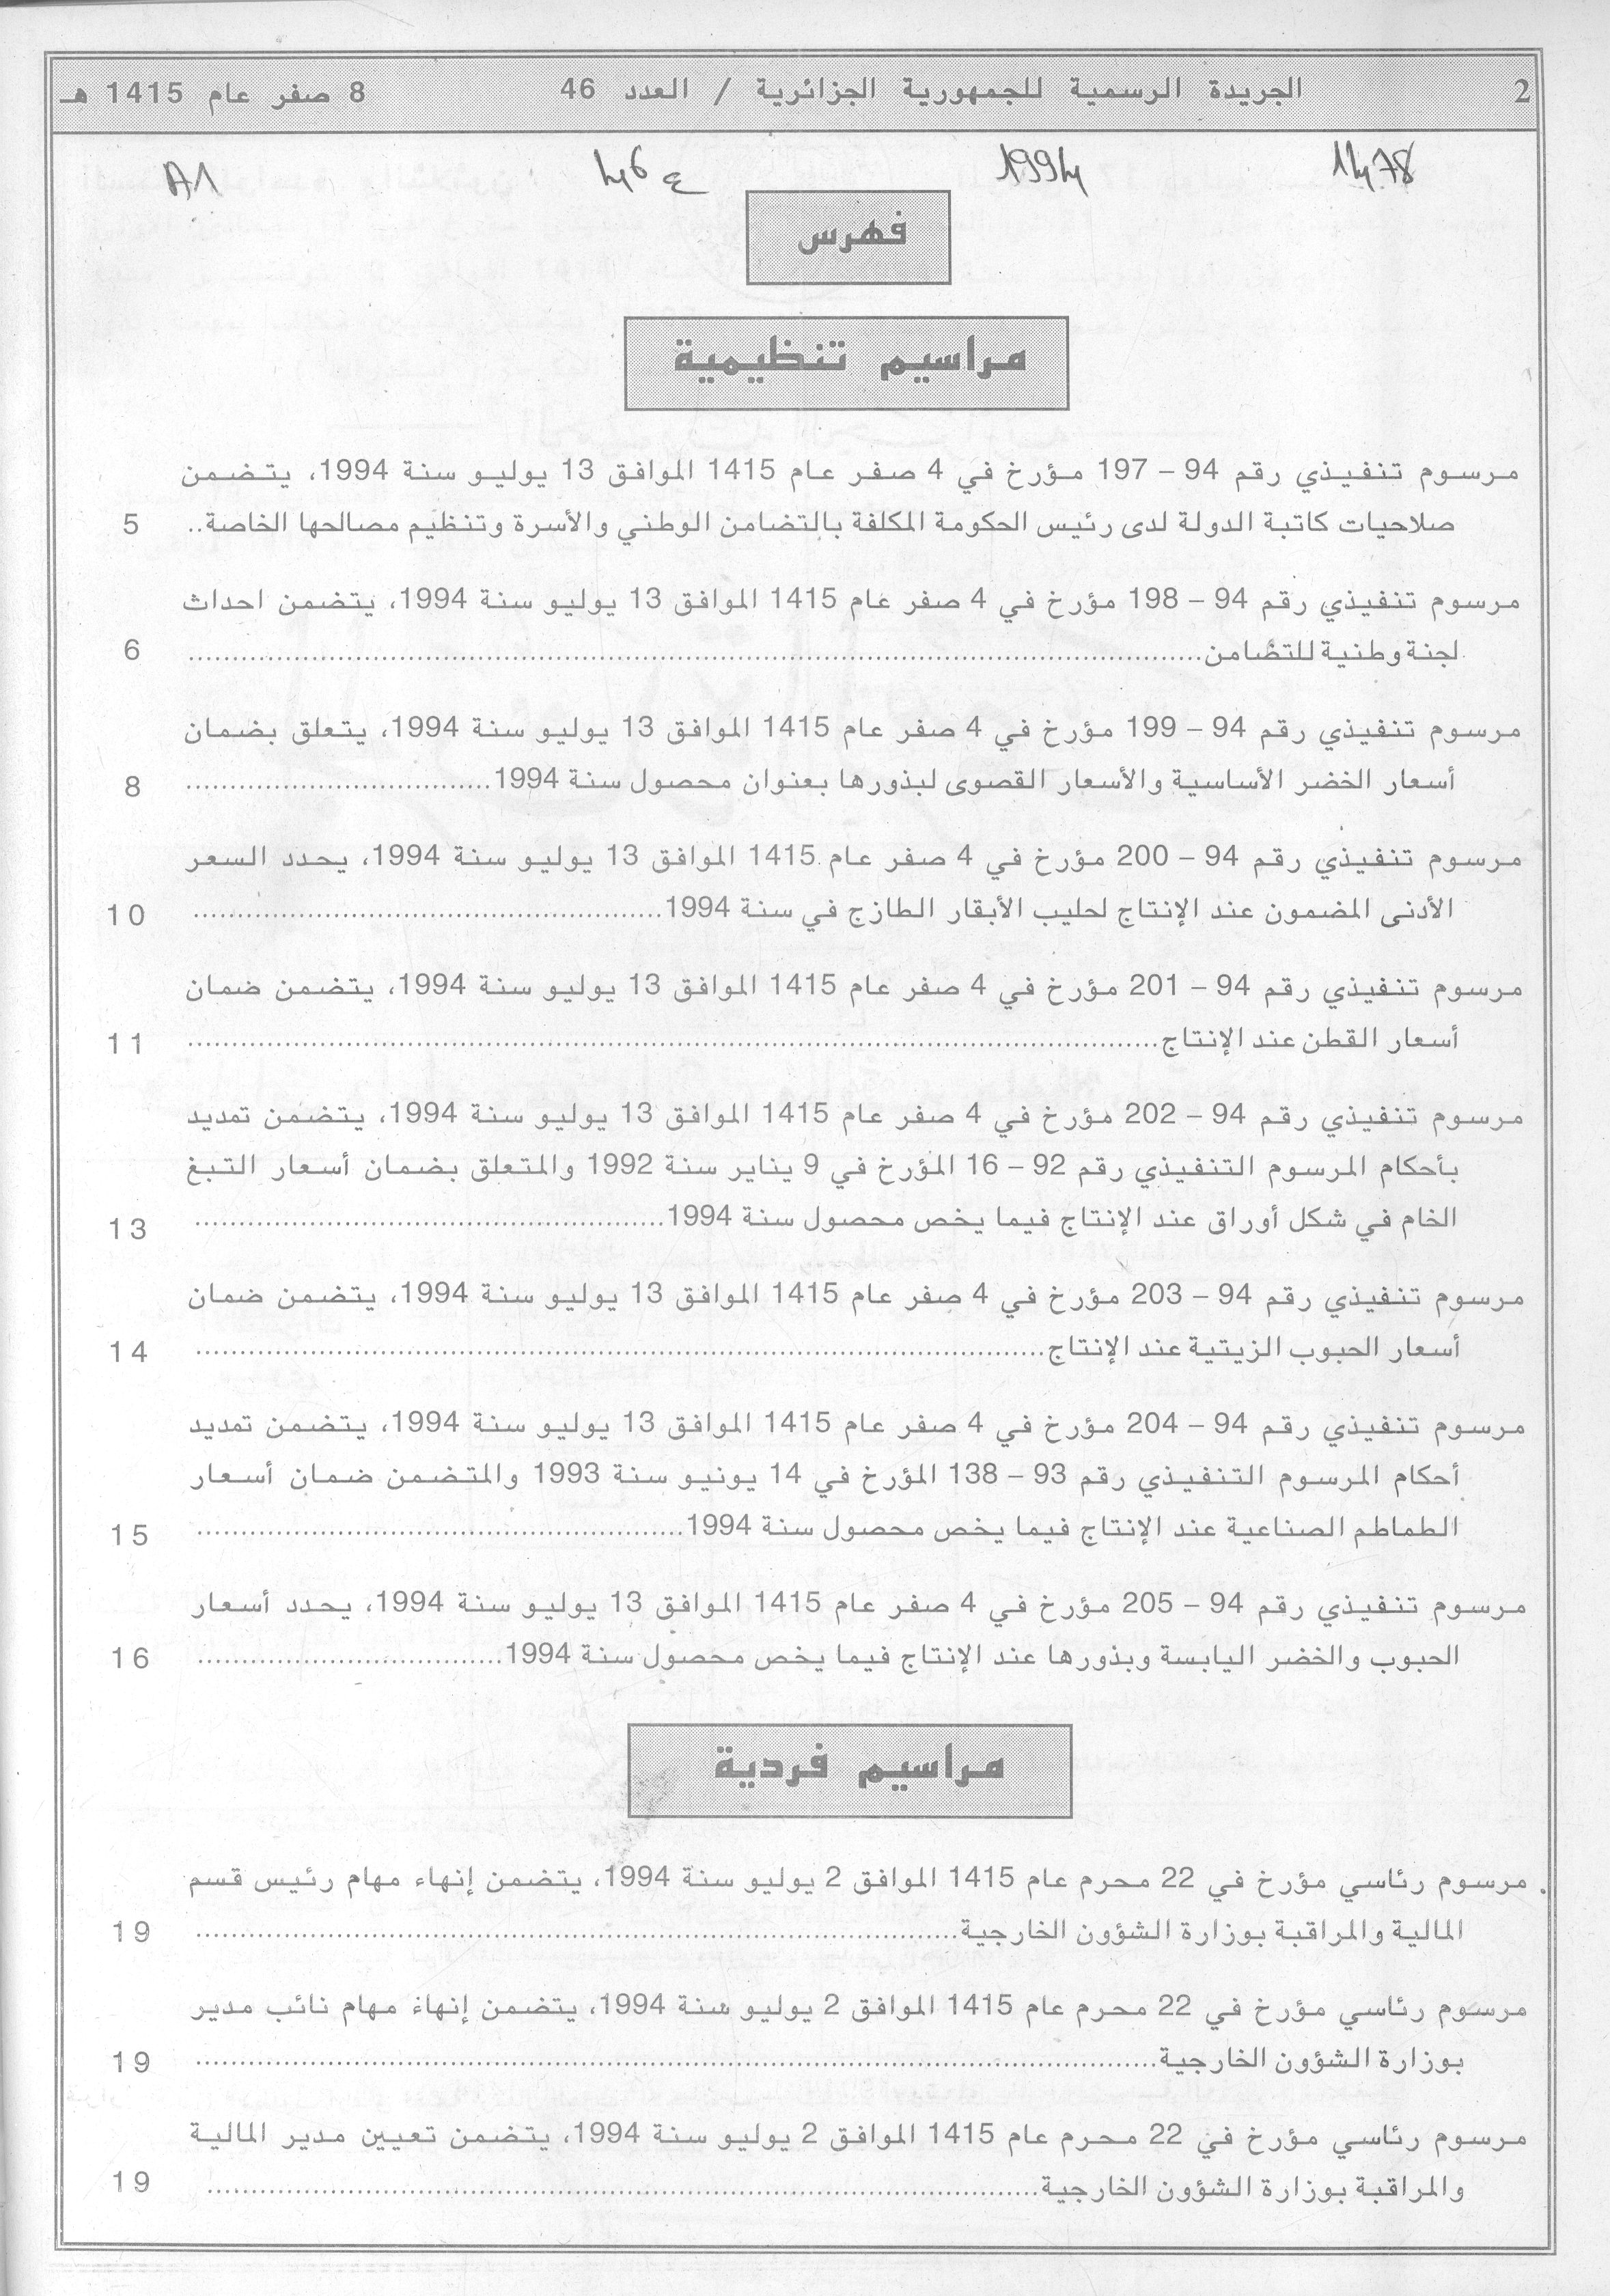 2
الجريدة الرسمية للجمهورية الجزائرية / العدد 46
8 صفر عام 1415 هـ
1478
1994
ع 46
A1
فهرس
مراسيم تنظيمية
مرسوم تنفيذي رقم 94 – 197 مؤرخ في 4 صفر عام 1415 الموافق 13 يوليو سنة 1994، يتضمن
صلاحيات كاتبة الدولة لدى رئيس الحكومة المكلفة بالتضامن الوطني والأسرة وتنظيم مصالحها الخاصة.. 5
مرسوم تنفيذي رقم 94 – 198 مؤرخ في 4 صفر عام 1415 الموافق 13 يوليو سنة 1994، يتضمن احداث
لجنة وطنية للتضامن........ 6
مرسوم تنفيذي رقم 94 – 199 مؤرخ في 4 صفر عام 1415 الموافق 13 يوليو سنة 1994، يتعلق بضمان
أسعار الخضر الأساسية والأسعار القصوى لبذورها بعنوان محصول سنة 1994........ 8
مرسوم تنفيذي رقم 94 – 200 مؤرخ في 4 صفر عام 1415 الموافق 13 يوليو سنة 1994، يحدد السعر
الأدنى المضمون عند الإنتاج لحليب الأبقار الطازج في سنة 1994........ 10
مرسوم تنفيذي رقم 94 – 201 مؤرخ في 4 صفر عام 1415 الموافق 13 يوليو سنة 1994، يتضمن ضمان
أسعار القطن عند الإنتاج........ 11
مرسوم تنفيذي رقم 94 – 202 مؤرخ في 4 صفر عام 1415 الموافق 13 يوليو سنة 1994، يتضمن تمديد
بأحكام المرسوم التنفيذي رقم 92 – 16 المؤرخ في 9 يناير سنة 1992 والمتعلق بضمان أسعار التبغ
الخام في شكل أوراق عند الإنتاج فيما يخص محصول سنة 1994........ 13
مرسوم تنفيذي رقم 94 – 203 مؤرخ في 4 صفر عام 1415 الموافق 13 يوليو سنة 1994، يتضمن ضمان
أسعار الحبوب الزيتية عند الإنتاج........ 14
مرسوم تنفيذي رقم 94 – 204 مؤرخ في 4 صفر عام 1415 الموافق 13 يوليو سنة 1994، يتضمن تمديد
أحكام المرسوم التنفيذي رقم 93 – 138 المؤرخ في 14 يونيو سنة 1993 والمتضمن ضمان أسعار
الطماطم الصناعية عند الإنتاج فيما يخص محصول سنة 1994........ 15
مرسوم تنفيذي رقم 94 – 205 مؤرخ في 4 صفر عام 1415 الموافق 13 يوليو سنة 1994، يحدد أسعار
الحبوب والخضر اليابسة وبذورها عند الإنتاج فيما يخص محصول سنة 1994........ 16
مراسيم فردية
مرسوم رئاسي مؤرخ في 22 محرم عام 1415 الموافق 2 يوليو سنة 1994، يتضمن إنهاء مهام رئيس قسم
المالية والمراقبة بوزارة الشؤون الخارجية........ 19
مرسوم رئاسي مؤرخ في 22 محرم عام 1415 الموافق 2 يوليو سنة 1994، يتضمن إنهاء مهام نائب مدير
بوزارة الشؤون الخارجية........ 19
مرسوم رئاسي مؤرخ في 22 محرم عام 1415 الموافق 2 يوليو سنة 1994، يتضمن تعيين مدير المالية
والمراقبة بوزارة الشؤون الخارجية........ 19